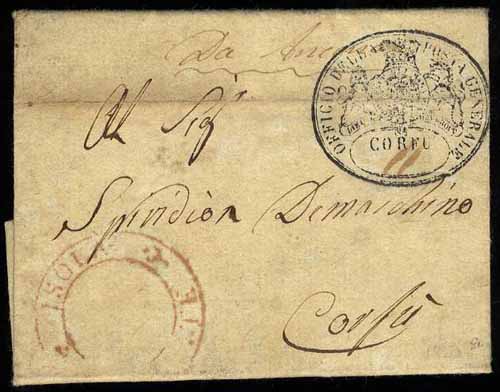 Da
OFFICIO DELLA POSTA GENERALE
CORFU
Al Sigr
Spiridion Demaschino
Corfù
ISOLE